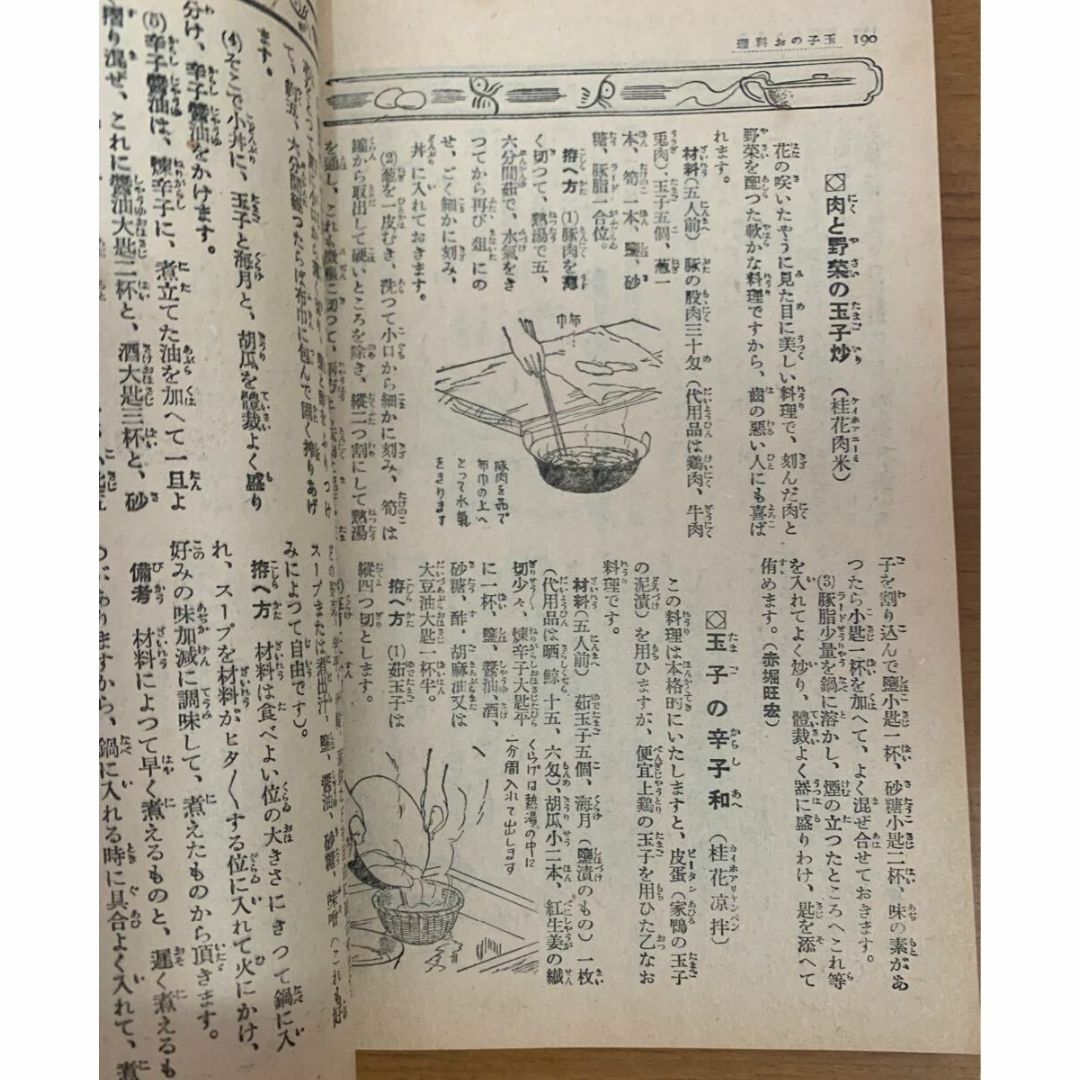 190
玉子のお料理
◇肉と野菜の玉子炒（桂花肉米）
花の咲いたやうに見た目に美しい料理で、刻んだ肉と
野菜を配つた軟かな料理ですから、齒の悪い人にも喜ば
れます。
材料（五人前）　豚の股肉三十匁（代用品は鷄肉、牛肉
兎肉）、玉子五個、葱一
本、筍一本、鹽、砂
糖、豚脂一合位。
拵へ方　(1)豚肉を薄
く切つて、熱湯で五、
六分間茹で、水氣をき
つてから再び俎にの
せ、ごく細かに刻み、
丼に入れておきます。
(2)葱を一皮むき、洗つて小口から細かに刻み、筍は
罐から取出して硬いところを除き、縱二つ割にして熱湯
を通し、これも
布巾
豚肉を茹で
布巾の上へ
とつて水氣
をきります
子を割り込んで鹽小匙一杯、砂糖小匙二杯、味の素があ
つたら小匙一杯を加へて、よく混ぜ合せておきます。
(3)豚脂少量を鍋に溶かし、煙の立つたところへこれ等
を入れてよく炒り、體裁よく器に盛りわけ、匙を添へて
侑めます。（赤堀旺宏）
◇玉子の辛子和（桂花凉拌）
この料理は本格的にいたしますと、皮蛋（家鴨の玉子
の泥漬）を用ひますが、便宜上鷄の玉子を用ひた乙なお
料理です。
材料（五人前）　茹玉子五個、海月（鹽漬のもの）一枚
（代用品は晒鯨十五、六匁）、胡瓜小二本、紅生姜の纎
切少々、煉辛子大匙平
に一杯、鹽、醬油、酒、
砂糖、酢、胡麻油又は
大豆油大匙一杯半。
拵へ方　(1)茹玉子は
縱四つ切とします。
くらげは熱湯の中に
一分間入れて出します
六分間
つたらは布巾に包んで固く搾りあげ
ます。
(4)そこで小丼に、玉子と海月と、胡瓜を體裁よく盛り
分け、辛子醬油をかけます。
(5)辛子醬油は、煉辛子に、煮立てた油を加へて一旦よ
摺り混ぜ、これに醬油大匙二杯と、酒大匙三杯と、砂
スープまたは煮出汁、鹽、醬油、砂糖、味噌（これも好
みによつて自由です）。
拵へ方　材料は食べよい位の大きさにきつて鍋に入
れ、スープを材料がヒタ〱する位に入れて火にかけ、
好みの味加減に調味して、煮えたものから頂きます。
備考　材料によつて早く煮えるものと、遲く煮えるも
ありますから、鍋に入れる時に具合よく入れて、煮